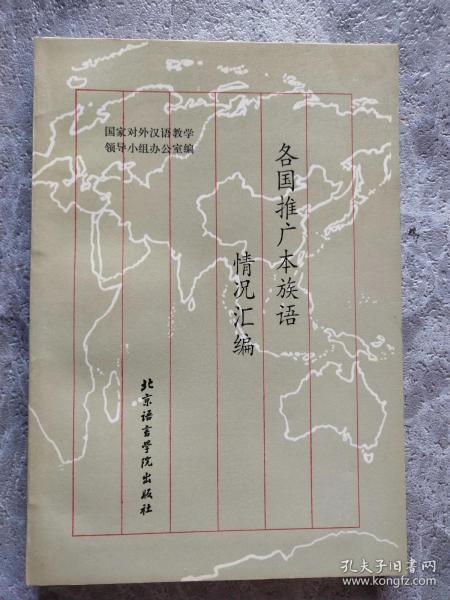 国家对外汉语教学
领导小组办公室编
各国推广本族语
情况汇编
北京语言学院出版社
孔夫子旧书网
www.kongfz.com